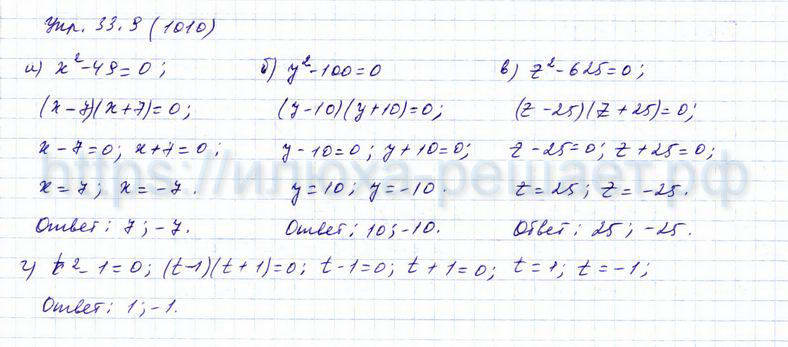 Упр. 33.9 (1010)
а) x²-49=0; б) y²-100=0 в) z²-625=0;
(x-7)(x+7)=0; (y-10)(y+10)=0; (z-25)(z+25)=0;
x-7=0; x+7=0; y-10=0; y+10=0; z-25=0; z+25=0;
https://илюха-решает.рф
x=7; x=-7. y=10; y=-10. z=25; z=-25.
Ответ: 7; -7. Ответ: 10; -10. Ответ: 25; -25.
г) t²-1=0; (t-1)(t+1)=0; t-1=0; t+1=0; t=1; t=-1;
Ответ: 1; -1.